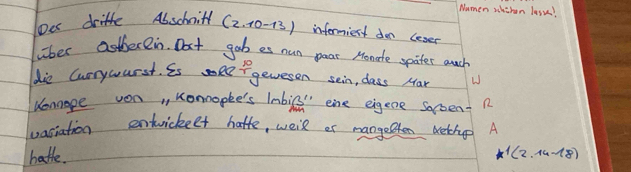 Namen schützen lassen!
Der dritte Abschnitt (Z.10-13) informiert den Leser
über Ostberlin. Dort gab es nun paar Monate später auch
die Currywurst. Es soll so gewesen sein, dass Max W
Konnope von „Konnopke's Imbiß" eine eigene Soßen- R
variation entwickelt hatte, weil er mangelten Ketchup A
hatte. *1(Z.14-18)